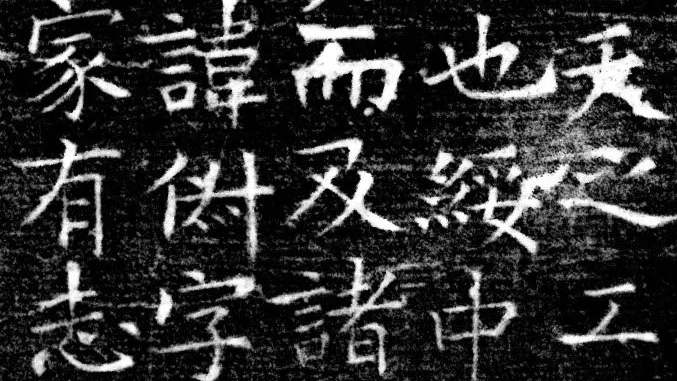 天之工
也綏中
而及諸
諱字
家有志